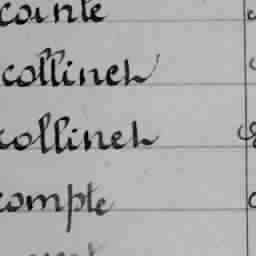 cointe
collineh
collineh
compte